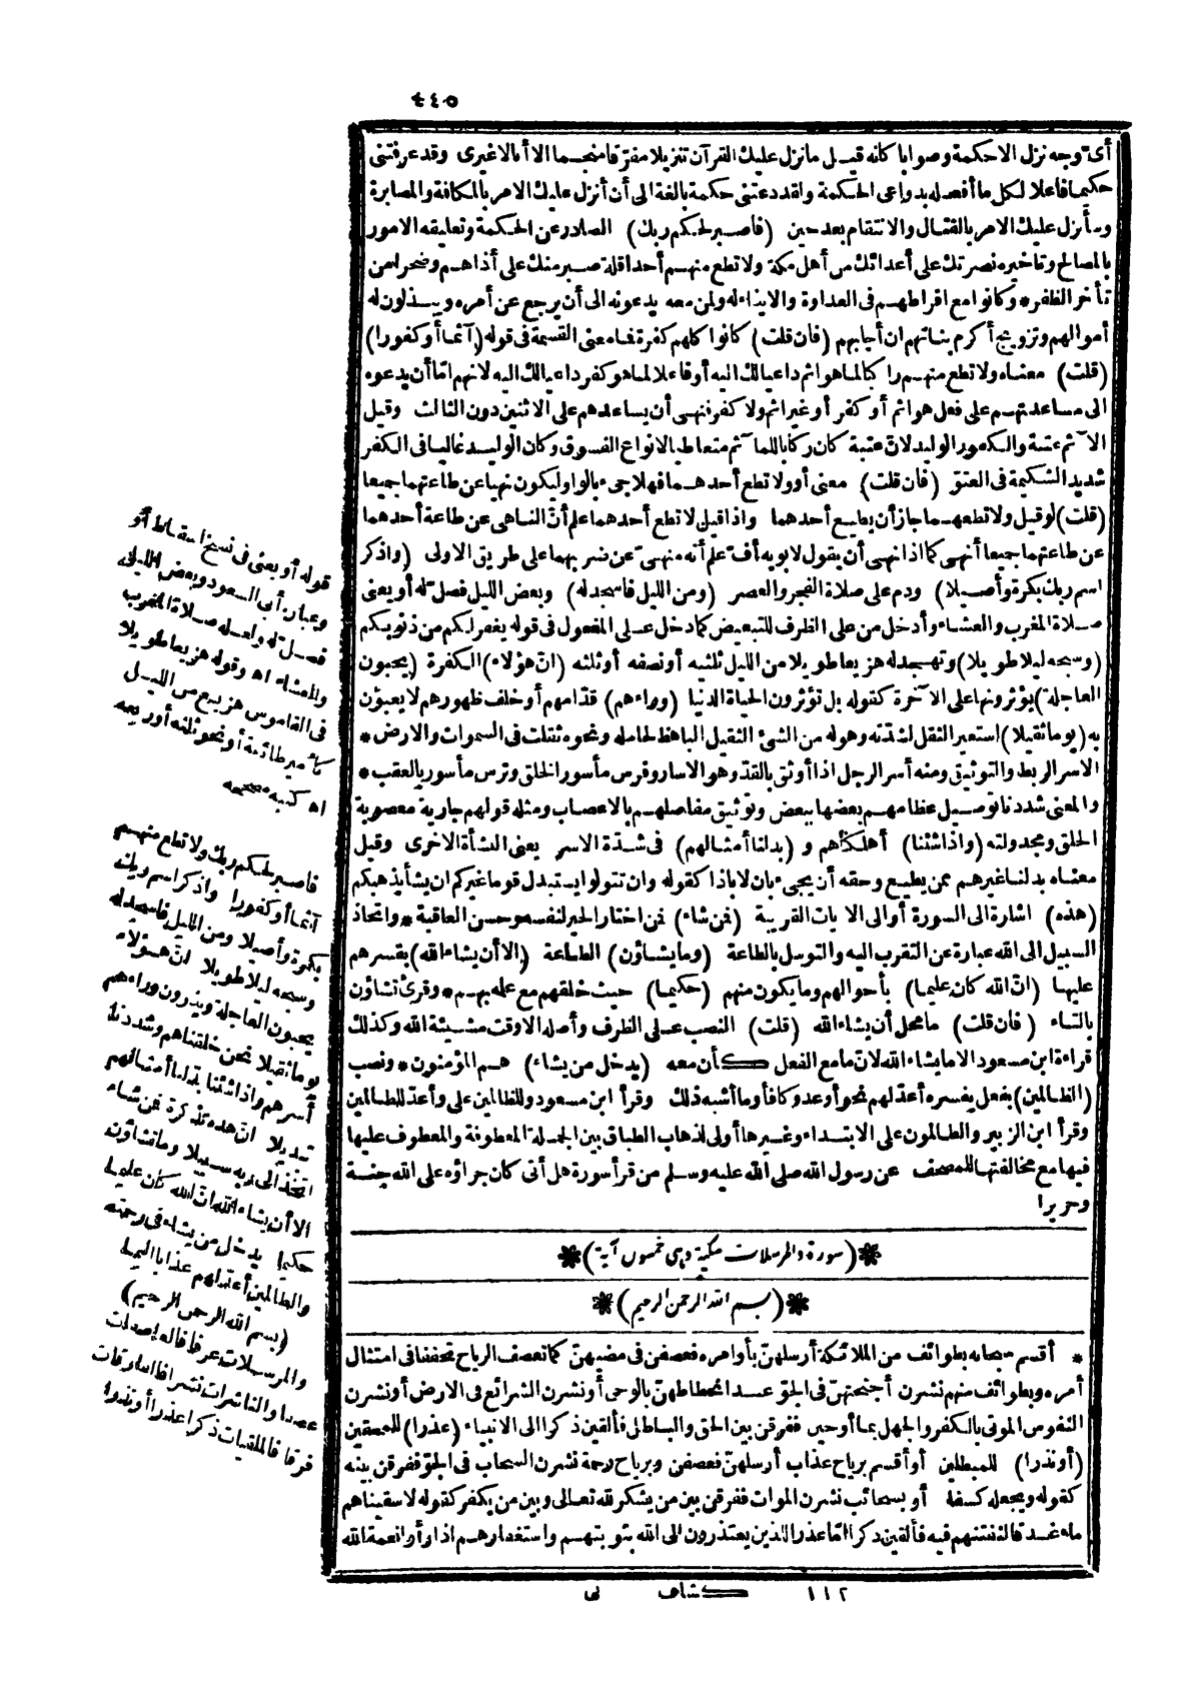 ٤٤٥
أى توجه نزل الا حكمة وصوابا كانه قيل ما نزل عليك القرآن تنزيلا مفرّقا منجما الا أنا لا غيرى وقد عرفتنى
حكيما فاعلا لكل ما أفعله بدواعى الحكمة ولقد دعتنى حكمة بالغة الى أن أنزل عليك الامر بالمكافة والمصابرة
وسأنزل عليك الامر بالقتال والانتقام بعد حين (فاصبر لحكم ربك) الصادر عن الحكمة وتعليقه الامور
بالمصالح وتأخيره نصرتك على أعدائك من أهل مكة ولا تطع منهم أحدا قلة صبر منك على أذاهم وضجرا من
تأخر الظفر * وكانوا مع افراطهم فى العداوة والايذاء له ولمن معه يدعونه الى أن يرجع عن أمره ويبذلون له
أموالهم وتزويج أكرم بناتهم ان أجابهم (فان قلت) كانوا كلهم كفرة فما معنى القسمة فى قوله (آثما أو كفورا)
(قلت) معناه ولا تطع منهم راكبا لما هو اثم داعيا لك اليه أو فاعلا لما هو كفر داعيا لك اليه لانهم امّا أن يدعوه
الى مساعدتهم على فعل هو اثم أو كفر أو غير اثم ولا كفر فنهى أن يساعدهم على الاثنين دون الثالث وقيل
الآثم عتبة والكفور الوليد لانّ عتبة كان ركابا للمآثم متعاطيا لانواع الفسوق وكان الوليد غاليا فى الكفر
شديد الشكيمة فى العتوّ (فان قلت) معنى أو ولا تطع أحدهما فهلا جىء بالواو ليكون نهيا عن طاعتهما جميعا
(قلت) لو قيل ولا تطعهما جاز أن يطيع أحدهما واذا قيل لا تطع أحدهما علم أنّ الناهى عن طاعة أحدهما
عن طاعتهما جميعا أنهى كما اذا نهى أن يقول لابويه أفّ علم أنه منهىّ عن ضربهما على طريق الاولى (واذكر
اسم ربك بكرة وأصيلا) ودم على صلاة الفجر والعصر (ومن الليل فاسجد له) وبعض الليل فصل له أو يعنى
صلاة المغرب والعشاء وأدخل من على الظرف للتبعيض كما دخل على المفعول فى قوله يغفر لكم من ذنوبكم
(وسبحه ليلا طويلا) وتهجد له هزيعا طويلا من الليل ثلثيه أو نصفه أو ثلثه (انّ هؤلاء) الكفرة (يحبون
العاجلة) يؤثرونها على الآخرة كقوله بل تؤثرون الحياة الدنيا (وراءهم) قدّامهم أو خلف ظهورهم لا يعبؤن
به (يوما ثقيلا) استعير الثقل لشدّته وهوله من الشئ الثقيل الباهظ لحامله ونحوه ثقلت فى السموات والارض *
الاسر الربط والتوثيق ومنه أسر الرجل اذا أوثق بالقدّ وهو الاسار وفرس مأسور الخلق وترس مأسور بالعقب *
والمعنى شددنا توصيل عظامهم بعضها ببعض وتوثيق مفاصلهم بالاعصاب ومثله قولهم جارية معصوبة
الخلق ومجدولته (واذا شئنا) أهلكناهم و (بدلنا أمثالهم) فى شدّة الاسر يعنى النشأة الاخرى وقيل
معناه بدلنا غيرهم ممن يطيع وحقه أن يجىء بان لا باذا كقوله وان تتولوا يستبدل قوما غيركم ان يشأ يذهبكم
(هذه) اشارة الى السورة أو الى الآيات القريبة (فمن شاء) فمن اختار الخير لنفسه وحسن العاقبة * واتخاذ
السبيل الى الله عبارة عن التقرب اليه والتوسل بالطاعة (وما يشاؤن) الطاعة (الا أن يشاء الله) بقسرهم
عليها (انّ الله كان عليما) بأحوالهم وما يكون منهم (حكيما) حيث خلقهم مع علمه بهم * وقرئ تشاؤن
بالتاء (فان قلت) ما محل أن يشاء الله (قلت) النصب على الظرف وأصله الا وقت مشيئة الله وكذلك
قراءة ابن مسعود الا ما يشاء الله لانّ ما مع الفعل كأن معه (يدخل من يشاء) هم المؤمنون * ونصب
(الظالمين) بفعل يفسره أعدّ لهم نحو أوعد وكافأ وما أشبه ذلك وقرأ ابن مسعود وللظالمين على وأعدّ للظالمين
وقرأ ابن الزبير والظالمون على الابتداء وغيرها أولى لذهاب الطباق بين الجملة المعطوفة والمعطوف عليها
فيها مع مخالفتها للمصحف عن رسول الله صلى الله عليه وسلم من قرأ سورة هل أتى كان جزاؤه على الله جنة
وحريرا
(سورة والمرسلات مكية وهى خمسون آية)
(بسم الله الرحمن الرحيم)
* أقسم سبحانه بطوائف من الملائكة أرسلهنّ بأوامره فعصفن فى مضيهنّ كما تعصف الرياح تخففا فى امتثال
أمره وبطوائف منهم نشرن أجنحتهنّ فى الجوّ عند انحطاطهنّ بالوحى أو نشرن الشرائع فى الارض أو نشرن
النفوس الموتى بالكفر والجهل بما أوحين ففرقن بين الحق والباطل فألقين ذكرا الى الانبياء (عذرا) للمحقين
(أو نذرا) للمبطلين أو أقسم برياح عذاب أرسلهنّ فعصفن وبرياح رحمة نشرن السحاب فى الجوّ ففرقن بينه
كقوله ويجعله كسفا أو بسحائب نشرن الموات ففرقن بين من يشكر لله تعالى وبين من يكفر كقوله لاسقيناهم
ماء غدقا لنفتنهم فيه فألقين ذكرا امّا عذرا للذين يعتذرون الى الله بتوبتهم واستغفارهم اذا رأوا نعمة الله
١١٢ كشاف نى
قوله أو يعنى فى نسخ اسقاط أو
وعبارة أبى السعود وبعض الليل
فصل له ولعله صلاة المغرب
والعشاء اه وقوله هزيعا طويلا
فى القاموس هزيع من الليل
كأمير طائفة أو نحو ثلثه أو ربعه
اه كتبه مصححه
فاصبر لحكم ربك ولا تطع منهم
آثما أو كفورا واذكر اسم ربك
بكرة وأصيلا ومن الليل فاسجد له
وسبحه ليلا طويلا انّ هؤلاء
يحبون العاجلة ويذرون وراءهم
يوما ثقيلا نحن خلقناهم وشددنا
أسرهم واذا شئنا بدّلنا أمثالهم
تبديلا انّ هذه تذكرة فمن شاء
اتخذ الى ربه سبيلا وما تشاؤن
الا أن يشاء الله انّ الله كان عليما
حكيما يدخل من يشاء فى رحمته
والظالمين أعدّ لهم عذابا أليما
(بسم الله الرحمن الرحيم)
والمرسلات عرفا فالعاصفات
عصفا والناشرات نشرا فالفارقات
فرقا فالملقيات ذكرا عذرا أو نذرا